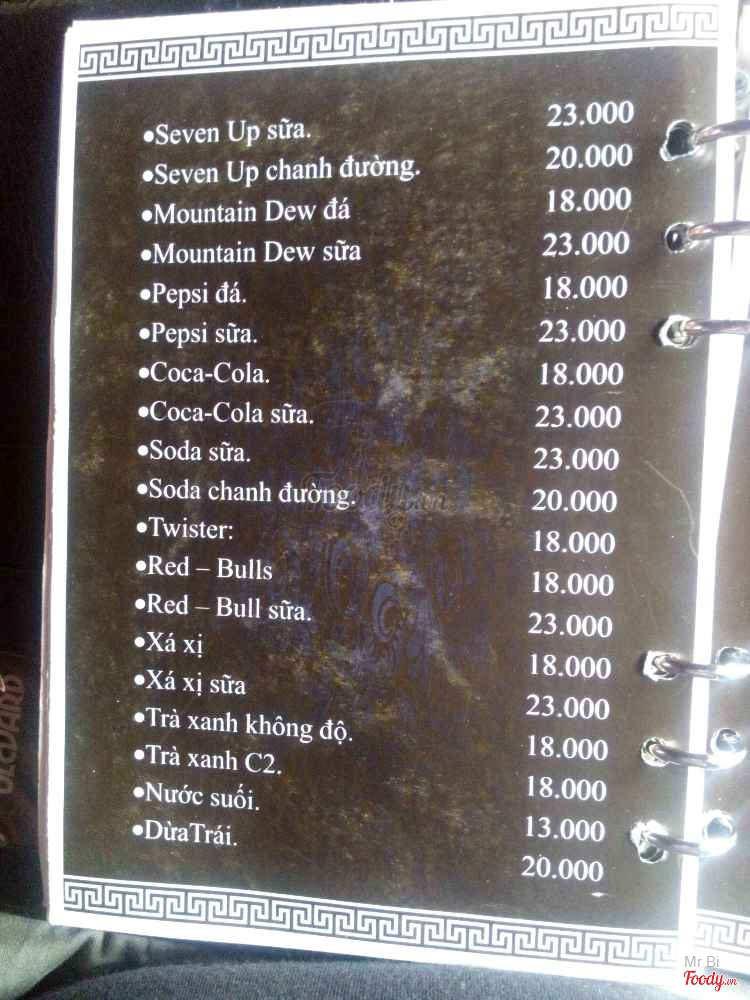 •Seven Up sữa. 23.000
•Seven Up chanh đường. 20.000
•Mountain Dew đá 18.000
•Mountain Dew sữa 23.000
•Pepsi đá. 18.000
•Pepsi sữa. 23.000
•Coca-Cola. 18.000
•Coca-Cola sữa. 23.000
•Soda sữa. 23.000
•Soda chanh đường. 20.000
•Twister: 18.000
•Red – Bulls 18.000
•Red – Bull sữa. 23.000
•Xá xị 18.000
•Xá xị sữa 23.000
•Trà xanh không độ. 18.000
•Trà xanh C2. 18.000
•Nước suối. 13.000
•DừaTrái. 20.000
Foody.vn
Mr Bi
Foody.vn